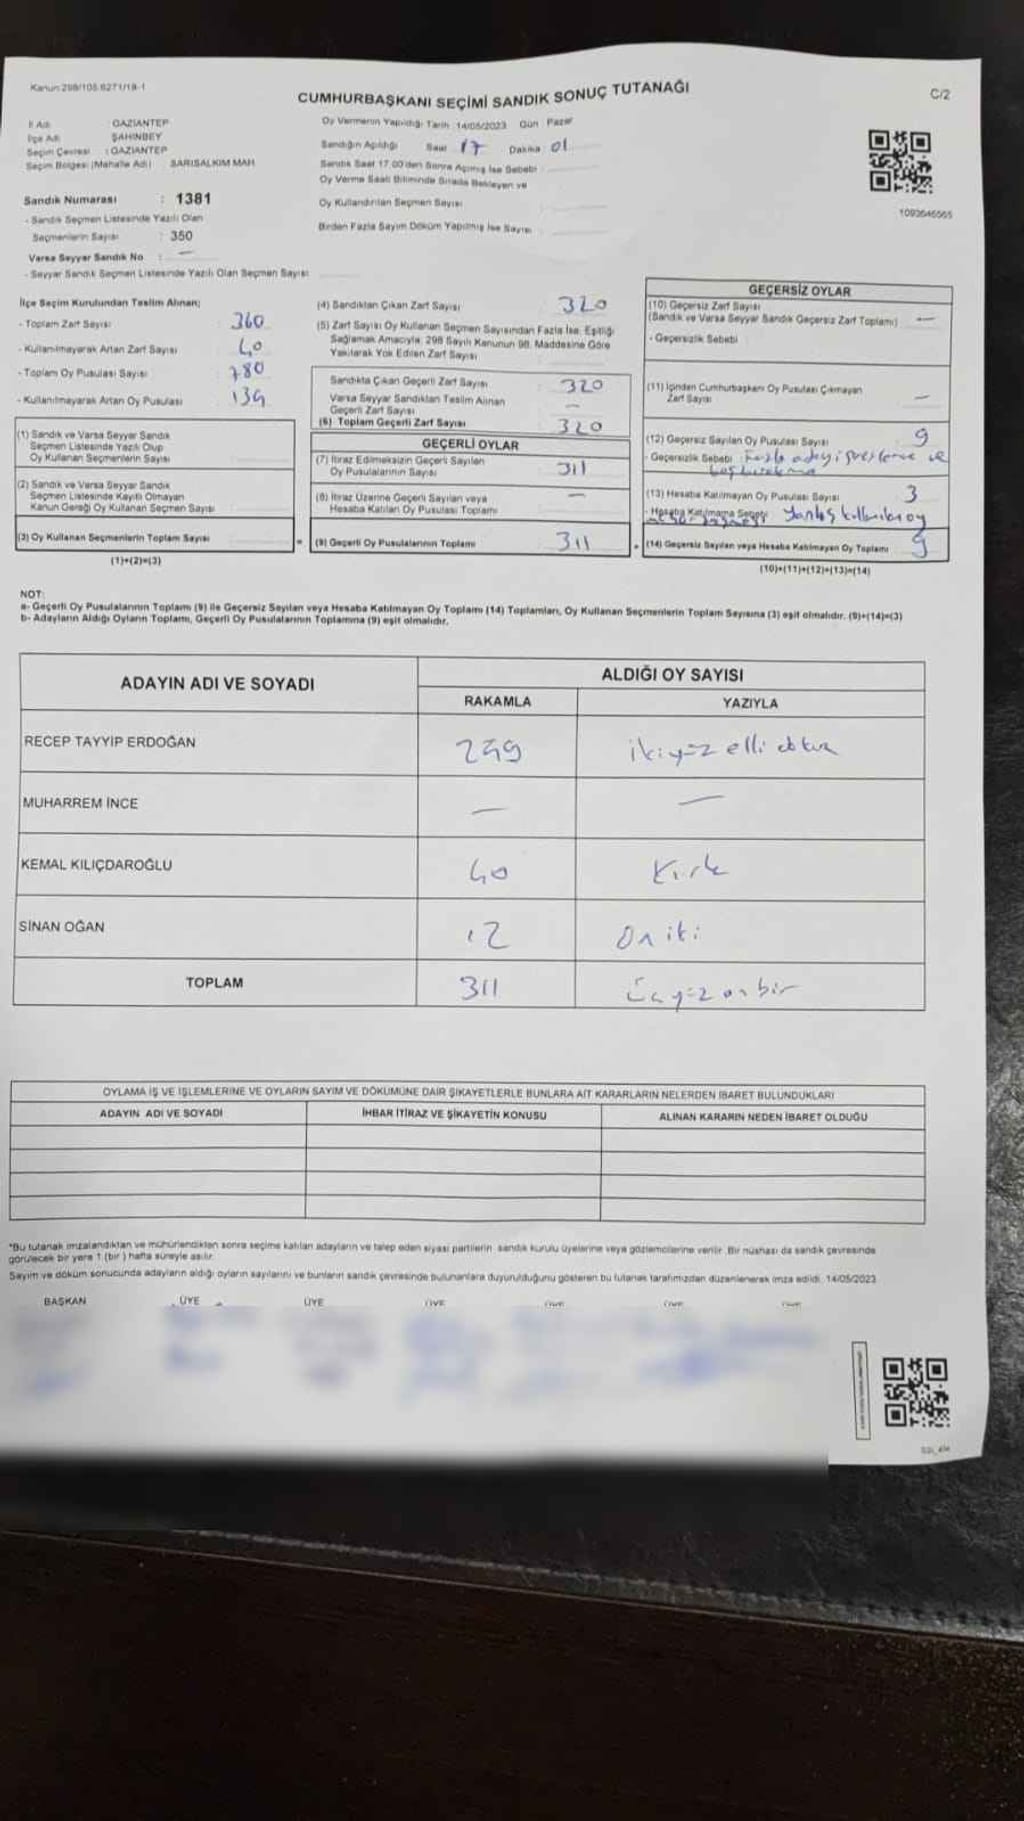 Kanun:298/105.6271/19-1
CUMHURBAŞKANI SEÇİMİ SANDIK SONUÇ TUTANAĞI
C/2
İl Adı : GAZİANTEP
İlçe Adı : ŞAHİNBEY
Seçim Çevresi : GAZİANTEP
Seçim Bölgesi (Mahalle Adı) : SARISALKIM MAH.
Sandık Numarası : 1381
- Sandık Seçmen Listesinde Yazılı Olan
Seçmenlerin Sayısı : 350
Varsa Seyyar Sandık No : —
- Seyyar Sandık Seçmen Listesinde Yazılı Olan Seçmen Sayısı
Oy Vermenin Yapıldığı Tarih :14/05/2023 Gün : Pazar
Sandığın Açıldığı Saat 17 Dakika 01
Sandık Saat 17.00'den Sonra Açılmış İse Sebebi
Oy Verme Saati Bitiminde Sırada Bekleyen ve
Oy Kullandırılan Seçmen Sayısı
Birden Fazla Sayım Döküm Yapılmış İse Sayısı
1093646565
İlçe Seçim Kurulundan Teslim Alınan;
- Toplam Zarf Sayısı 360
- Kullanılmayarak Artan Zarf Sayısı 40
- Toplam Oy Pusulası Sayısı 780
- Kullanılmayarak Artan Oy Pusulası 139
(1) Sandık ve Varsa Seyyar Sandık
Seçmen Listesinde Yazılı Olup
Oy Kullanan Seçmenlerin Sayısı
(2) Sandık ve Varsa Seyyar Sandık
Seçmen Listesinde Kayıtlı Olmayan
Kanun Gereği Oy Kullanan Seçmen Sayısı
(3) Oy Kullanan Seçmenlerin Toplam Sayısı
(1)+(2)=(3)
(4) Sandıktan Çıkan Zarf Sayısı 320
(5) Zarf Sayısı Oy Kullanan Seçmen Sayısından Fazla İse, Eşitliği
Sağlamak Amacıyla, 298 Sayılı Kanunun 98. Maddesine Göre
Yakılarak Yok Edilen Zarf Sayısı
Sandıkta Çıkan Geçerli Zarf Sayısı 320
Varsa Seyyar Sandıktan Teslim Alınan
Geçerli Zarf Sayısı —
(6) Toplam Geçerli Zarf Sayısı 320
GEÇERLİ OYLAR
(7) İtiraz Edilmeksizin Geçerli Sayılan
Oy Pusulalarının Sayısı 311
(8) İtiraz Üzerine Geçerli Sayılan veya
Hesaba Katılan Oy Pusulası Toplamı —
= (9) Geçerli Oy Pusulalarının Toplamı 311
GEÇERSİZ OYLAR
(10) Geçersiz Zarf Sayısı
(Sandık ve Varsa Seyyar Sandık Geçersiz Zarf Toplamı) —
- Geçersizlik Sebebi
(11) İçinden Cumhurbaşkanı Oy Pusulası Çıkmayan
Zarf Sayısı —
(12) Geçersiz Sayılan Oy Pusulası Sayısı 9
- Geçersizlik Sebebi : Fazla adayı işaretleme ve
boş bırakma
(13) Hesaba Katılmayan Oy Pusulası Sayısı 3
- Hesaba Katılmama Sebebi Yanlış kullanılan oy
+ (14) Geçersiz Sayılan veya Hesaba Katılmayan Oy Toplamı 9
(10)+(11)+(12)+(13)=(14)
NOT:
a- Geçerli Oy Pusulalarının Toplamı (9) ile Geçersiz Sayılan veya Hesaba Katılmayan Oy Toplamı (14) Toplamları, Oy Kullanan Seçmenlerin Toplam Sayısına (3) eşit olmalıdır. (9)+(14)=(3)
b- Adayların Aldığı Oyların Toplamı, Geçerli Oy Pusulalarının Toplamına (9) eşit olmalıdır.
ADAYIN ADI VE SOYADI ALDIĞI OY SAYISI
RAKAMLA YAZIYLA
RECEP TAYYİP ERDOĞAN 259 ikiyüz elli dokuz
MUHARREM İNCE — —
KEMAL KILIÇDAROĞLU 40 Kırk
SİNAN OĞAN 12 On iki
TOPLAM 311 üçyüz on bir
OYLAMA İŞ VE İŞLEMLERİNE VE OYLARIN SAYIM VE DÖKÜMÜNE DAİR ŞİKAYETLERLE BUNLARA AİT KARARLARIN NELERDEN İBARET BULUNDUKLARI
ADAYIN ADI VE SOYADI İHBAR İTİRAZ VE ŞİKAYETİN KONUSU ALINAN KARARIN NEDEN İBARET OLDUĞU
*Bu tutanak imzalandıktan ve mühürlendikten sonra seçime katılan adayların ve talep eden siyasi partilerin sandık kurulu üyelerine veya gözlemcilerine verilir. Bir nüshası da sandık çevresinde
görülecek bir yere 1 (bir ) hafta süreyle asılır.
Sayım ve döküm sonucunda adayların aldığı oyların sayılarını ve bunların sandık çevresinde bulunanlara duyurulduğunu gösteren bu tutanak tarafımızdan düzenlenerek imza edildi. 14/05/2023
BAŞKAN ÜYE ÜYE ÜYE ÜYE ÜYE ÜYE